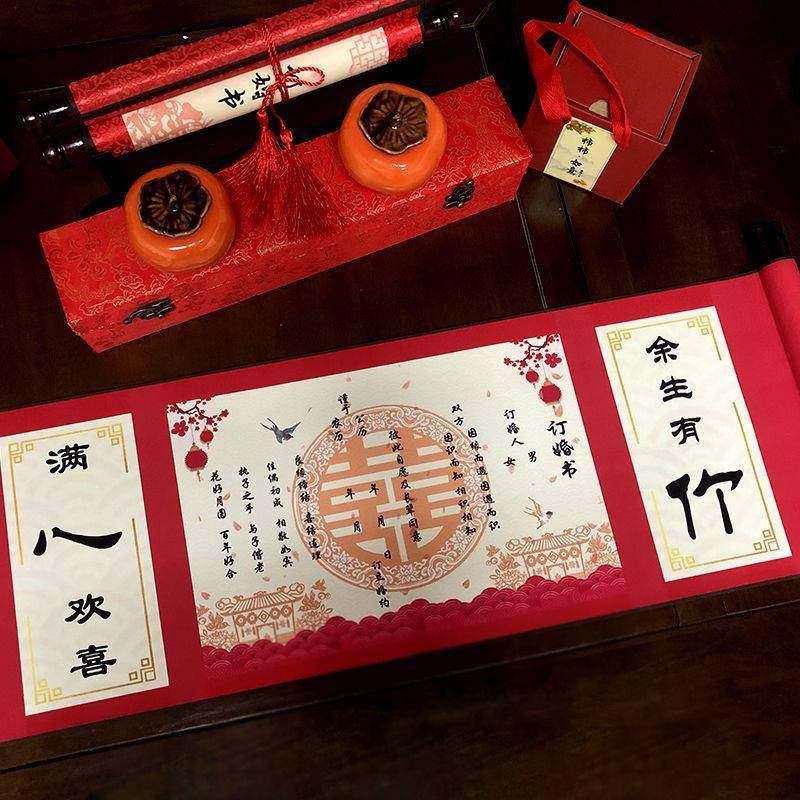 婚书
柿柿如意
余生有你
订婚书
订婚人 男
女
双方 因缘而遇因遇而识
因识而知相识相知
彼此自愿及长辈同意
谨于 公历 年 月 日订立婚约
农历 年 月
良缘缔结 连理
佳偶初成 相敬如宾
执子之手 与子偕老
花好月圆 百年好合
满八欢喜